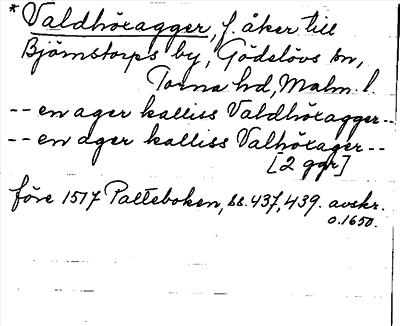 * Valdhöragger, f. åker till
Björnstorps by, Gödelövs sn,
Torna hd, Malm. l.
-- en ager kalliss Valdhöragger --
-- en ager kalliss Valhörager --
[2 ggr]
före 1517 Palteboken, ss. 437, 439. avskr.
o. 1650.